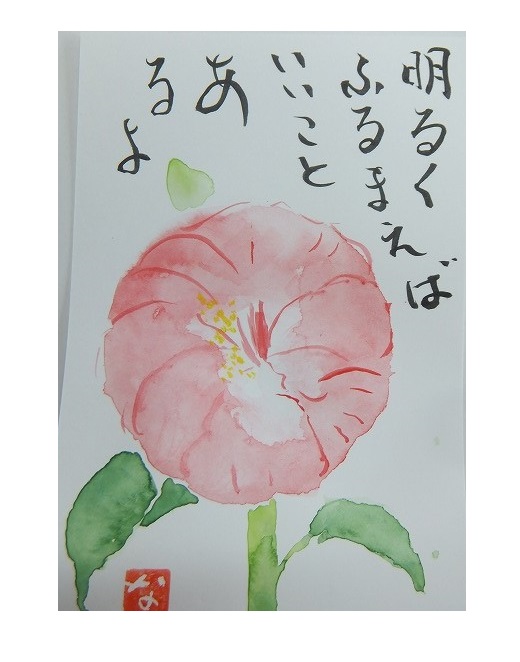 明るく
ふるまえば
いいこと
あ
るよ